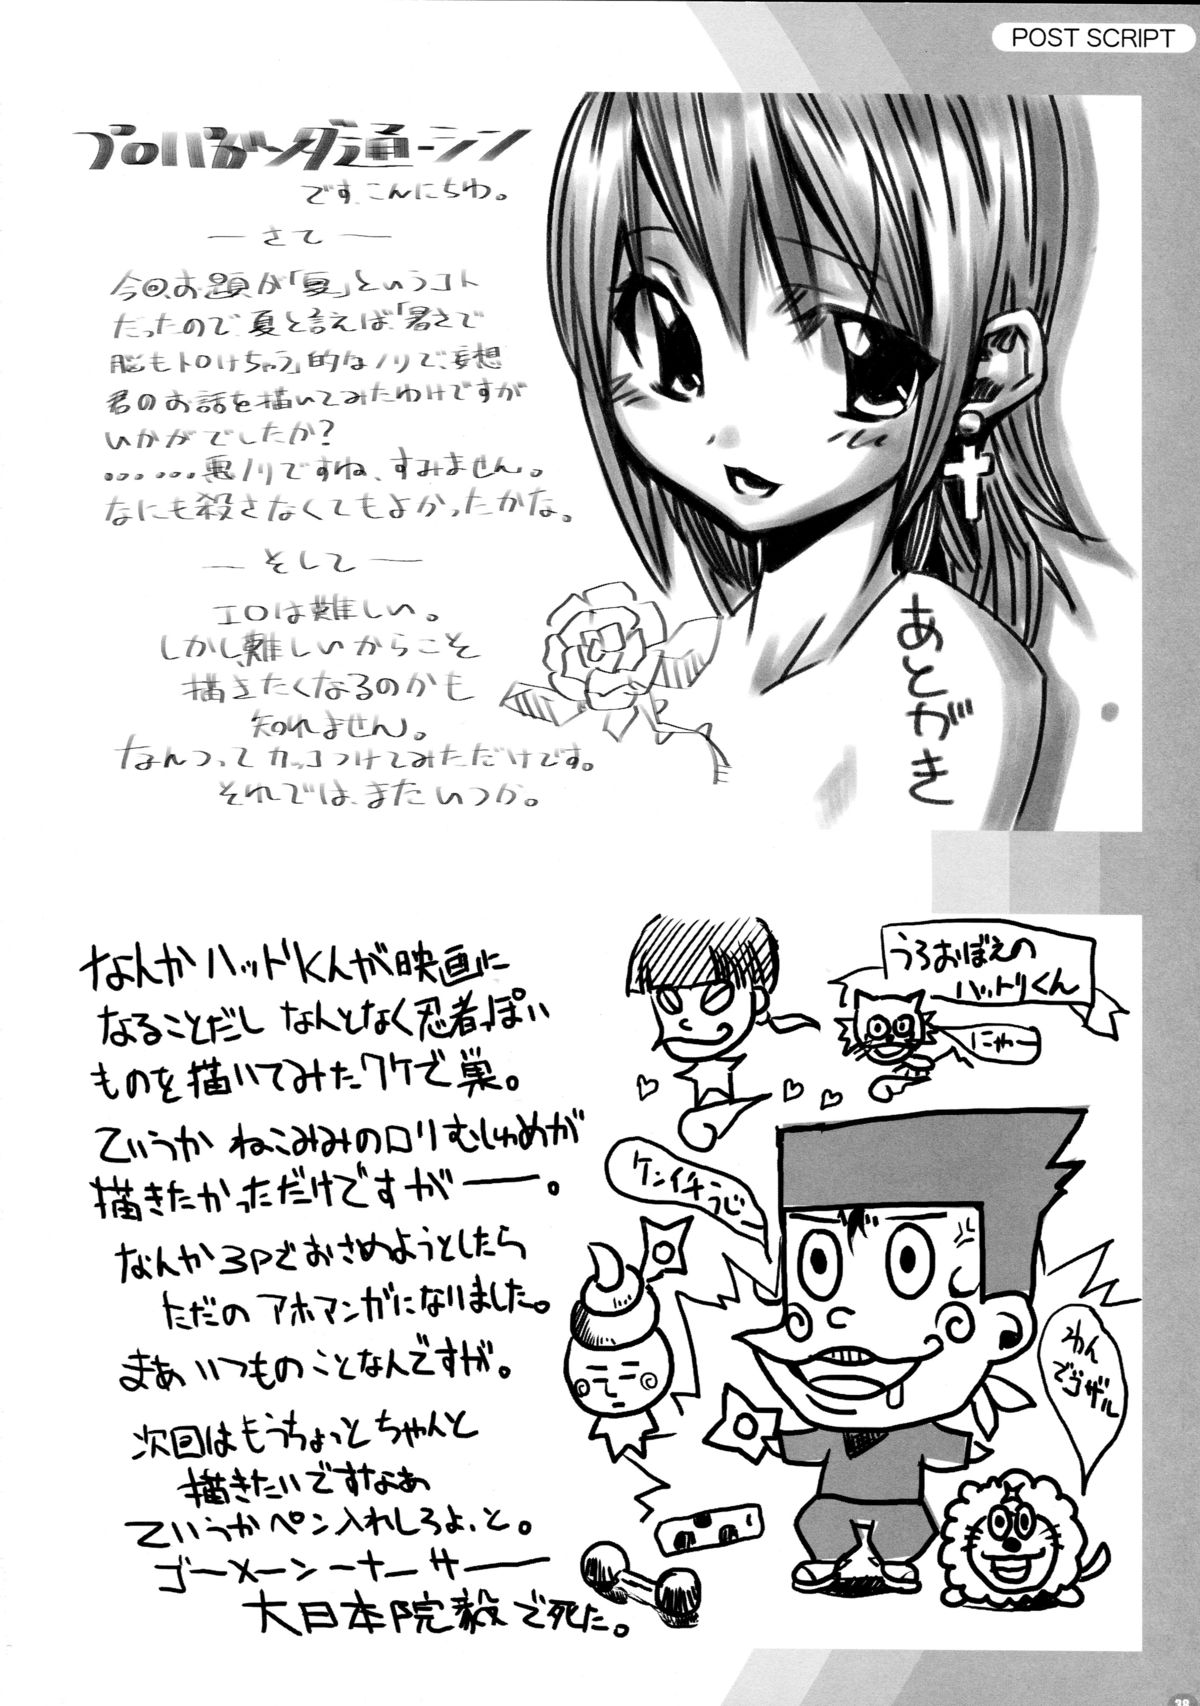 POST SCRIPT
プロパガンダ通ーシン
です、こんにちわ。
― さて ―
今回、お題が「夏」というコト
だったので、夏と言えば、「暑さで
脳もトロけちゃう」的なノリで、妄想
君のお話を描いてみたわけですが
いかがでしたか?
……悪ノリですね、すみません。
なにも殺さなくてもよかったかな。
― そして ―
エロは難しい。
しかし、難しいからこそ
描きたくなるのかも
知れません。
なんつってカッコつけてみただけです。
それでは、またいつか。
あとがき
なんかハットリくんが映画に
なることだし なんとなく忍者っぽい
ものを描いてみたワケで巣。
ていうか ねこみみのロリむしゅめが
描きたかっただけですがーー。
なんか3Pでおさめようとしたら
ただの アホマンガになりました。
まあ いつものことなんですが。
次回はもうちょっとちゃんと
描きたいですなあ
ていうかペン入れしろよ、と。
ゴーメーンーナーサー
大日本院毅で死た。
うろおぼえの
ハットリくん
にゃー
ケンイチうじー
わん
でゴザル